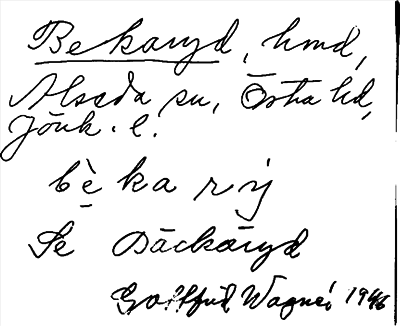 Bekaryd, hmd,
Alseda sn, Östra hd,
Jönk. l.
bè̠ka rỳ
Se Bäckaryd
Gottfrid Wagnér 1946